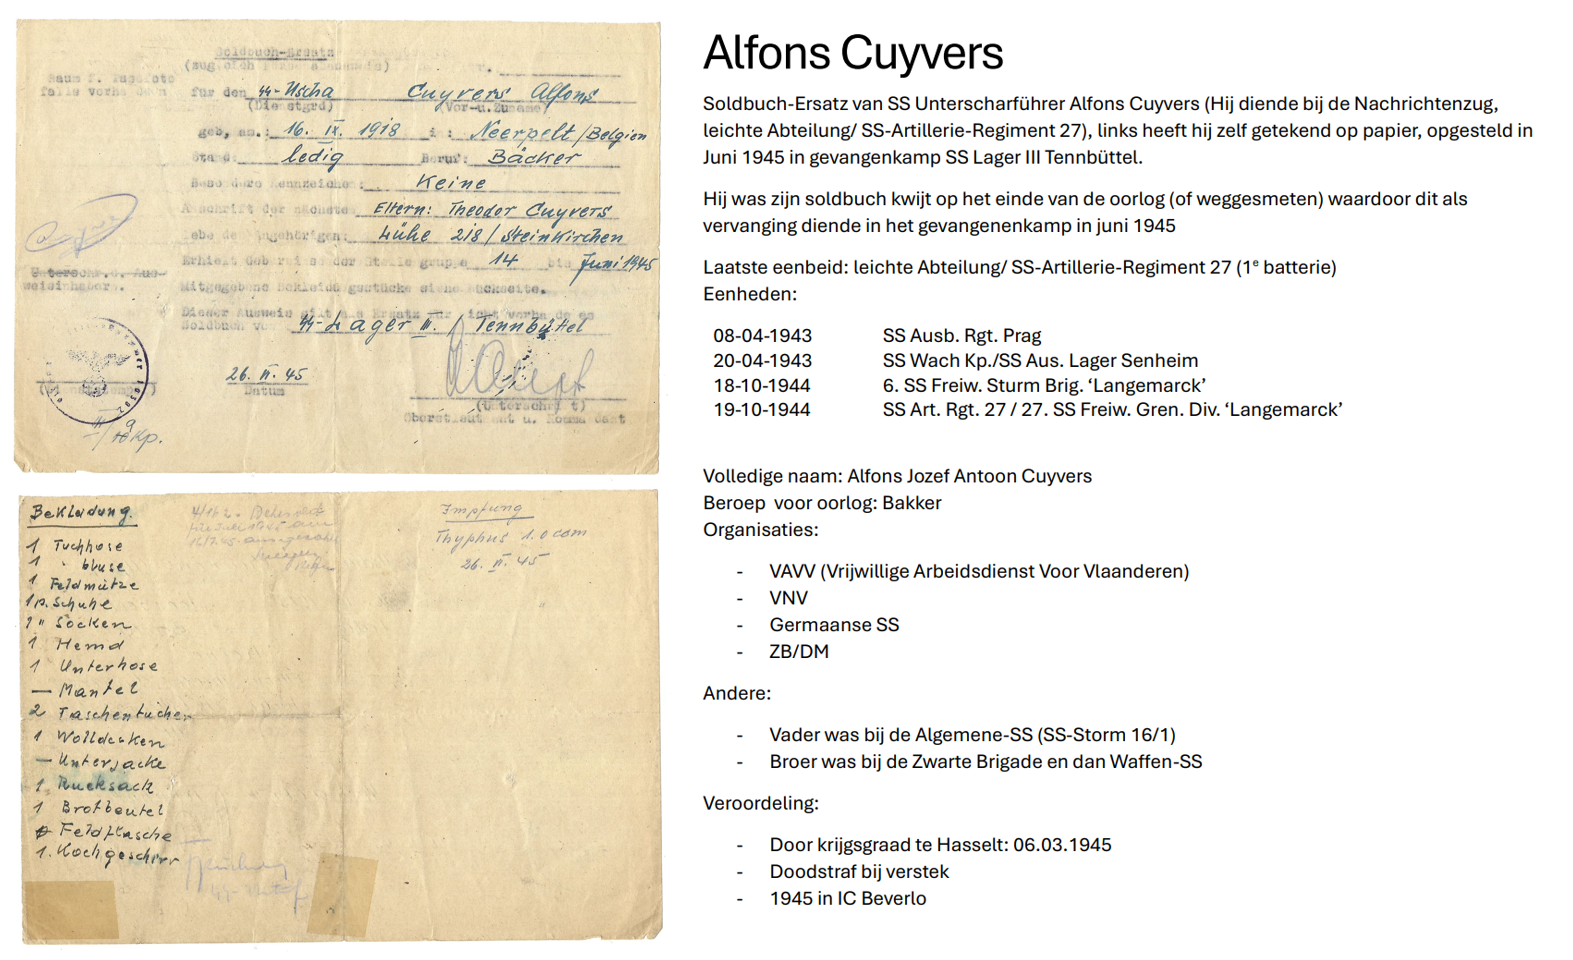 Soldbuch-Ersatz
für den SS-Uscha Cuyvers Alfons
(Dienstgrd) (Vor-u.Zuname)
geb. am.: 16. IX. 1918 in: Neerpelt/Belgien
Stand: ledig Beruf: Bäcker
Besondere Kennzeichen: Keine
Anschrift der nächsten Eltern: Theodor Cuyvers
lebenden Angehörigen: Lühe 218/Steinkirchen
14 bis Juni 1945
Unterschr.d. Aus-
weisinhabers.
Mitgegebene Bekleidungsstücke siehe Rückseite.
Dieser Ausweis gilt als Ersatz für
Soldbuch von SS-Lager III. / Tennbüttel
26. VI. 45
Datum
(Unterschrift)
Oberstleutnant u. Kommandant
Bekleidung.
1 Tuchhose
1 " bluse
1 Feldmütze
1 p. Schuhe
1 " Socken
1 Hemd
1 Unterhose
— Mantel
2 Taschentücher
1 Wolldecken
— Unterjacke
1 Rucksack
1 Brotbeutel
Feldflasche
1. Kochgeschirr
Impfung
Thyphus 1.0 ccm
26. VI. 45
Alfons Cuyvers
Soldbuch-Ersatz van SS Unterscharführer Alfons Cuyvers (Hij diende bij de Nachrichtenzug,
leichte Abteilung/ SS-Artillerie-Regiment 27), links heeft hij zelf getekend op papier, opgesteld in
Juni 1945 in gevangenkamp SS Lager III Tennbüttel.
Hij was zijn soldbuch kwijt op het einde van de oorlog (of weggesmeten) waardoor dit als
vervanging diende in het gevangenenkamp in juni 1945
Laatste eenbeid: leichte Abteilung/ SS-Artillerie-Regiment 27 (1e batterie)
Eenheden:
08-04-1943 SS Ausb. Rgt. Prag
20-04-1943 SS Wach Kp./SS Aus. Lager Senheim
18-10-1944 6. SS Freiw. Sturm Brig. ‘Langemarck’
19-10-1944 SS Art. Rgt. 27 / 27. SS Freiw. Gren. Div. ‘Langemarck’
Volledige naam: Alfons Jozef Antoon Cuyvers
Beroep voor oorlog: Bakker
Organisaties:
- VAVV (Vrijwillige Arbeidsdienst Voor Vlaanderen)
- VNV
- Germaanse SS
- ZB/DM
Andere:
- Vader was bij de Algemene-SS (SS-Storm 16/1)
- Broer was bij de Zwarte Brigade en dan Waffen-SS
Veroordeling:
- Door krijgsgraad te Hasselt: 06.03.1945
- Doodstraf bij verstek
- 1945 in IC Beverlo